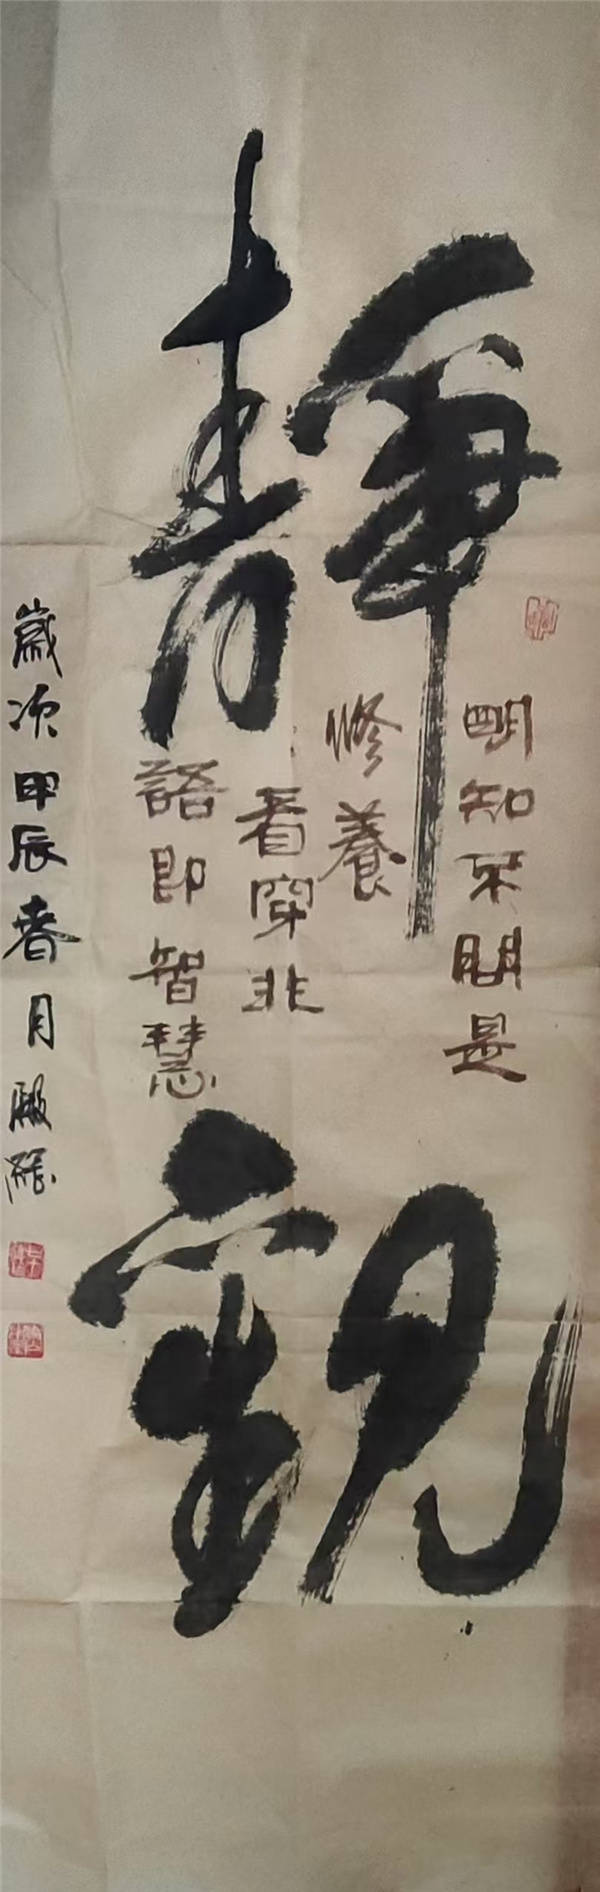 靜觀
明知不問是
修養
看穿非
語即智慧
歲次甲辰春月